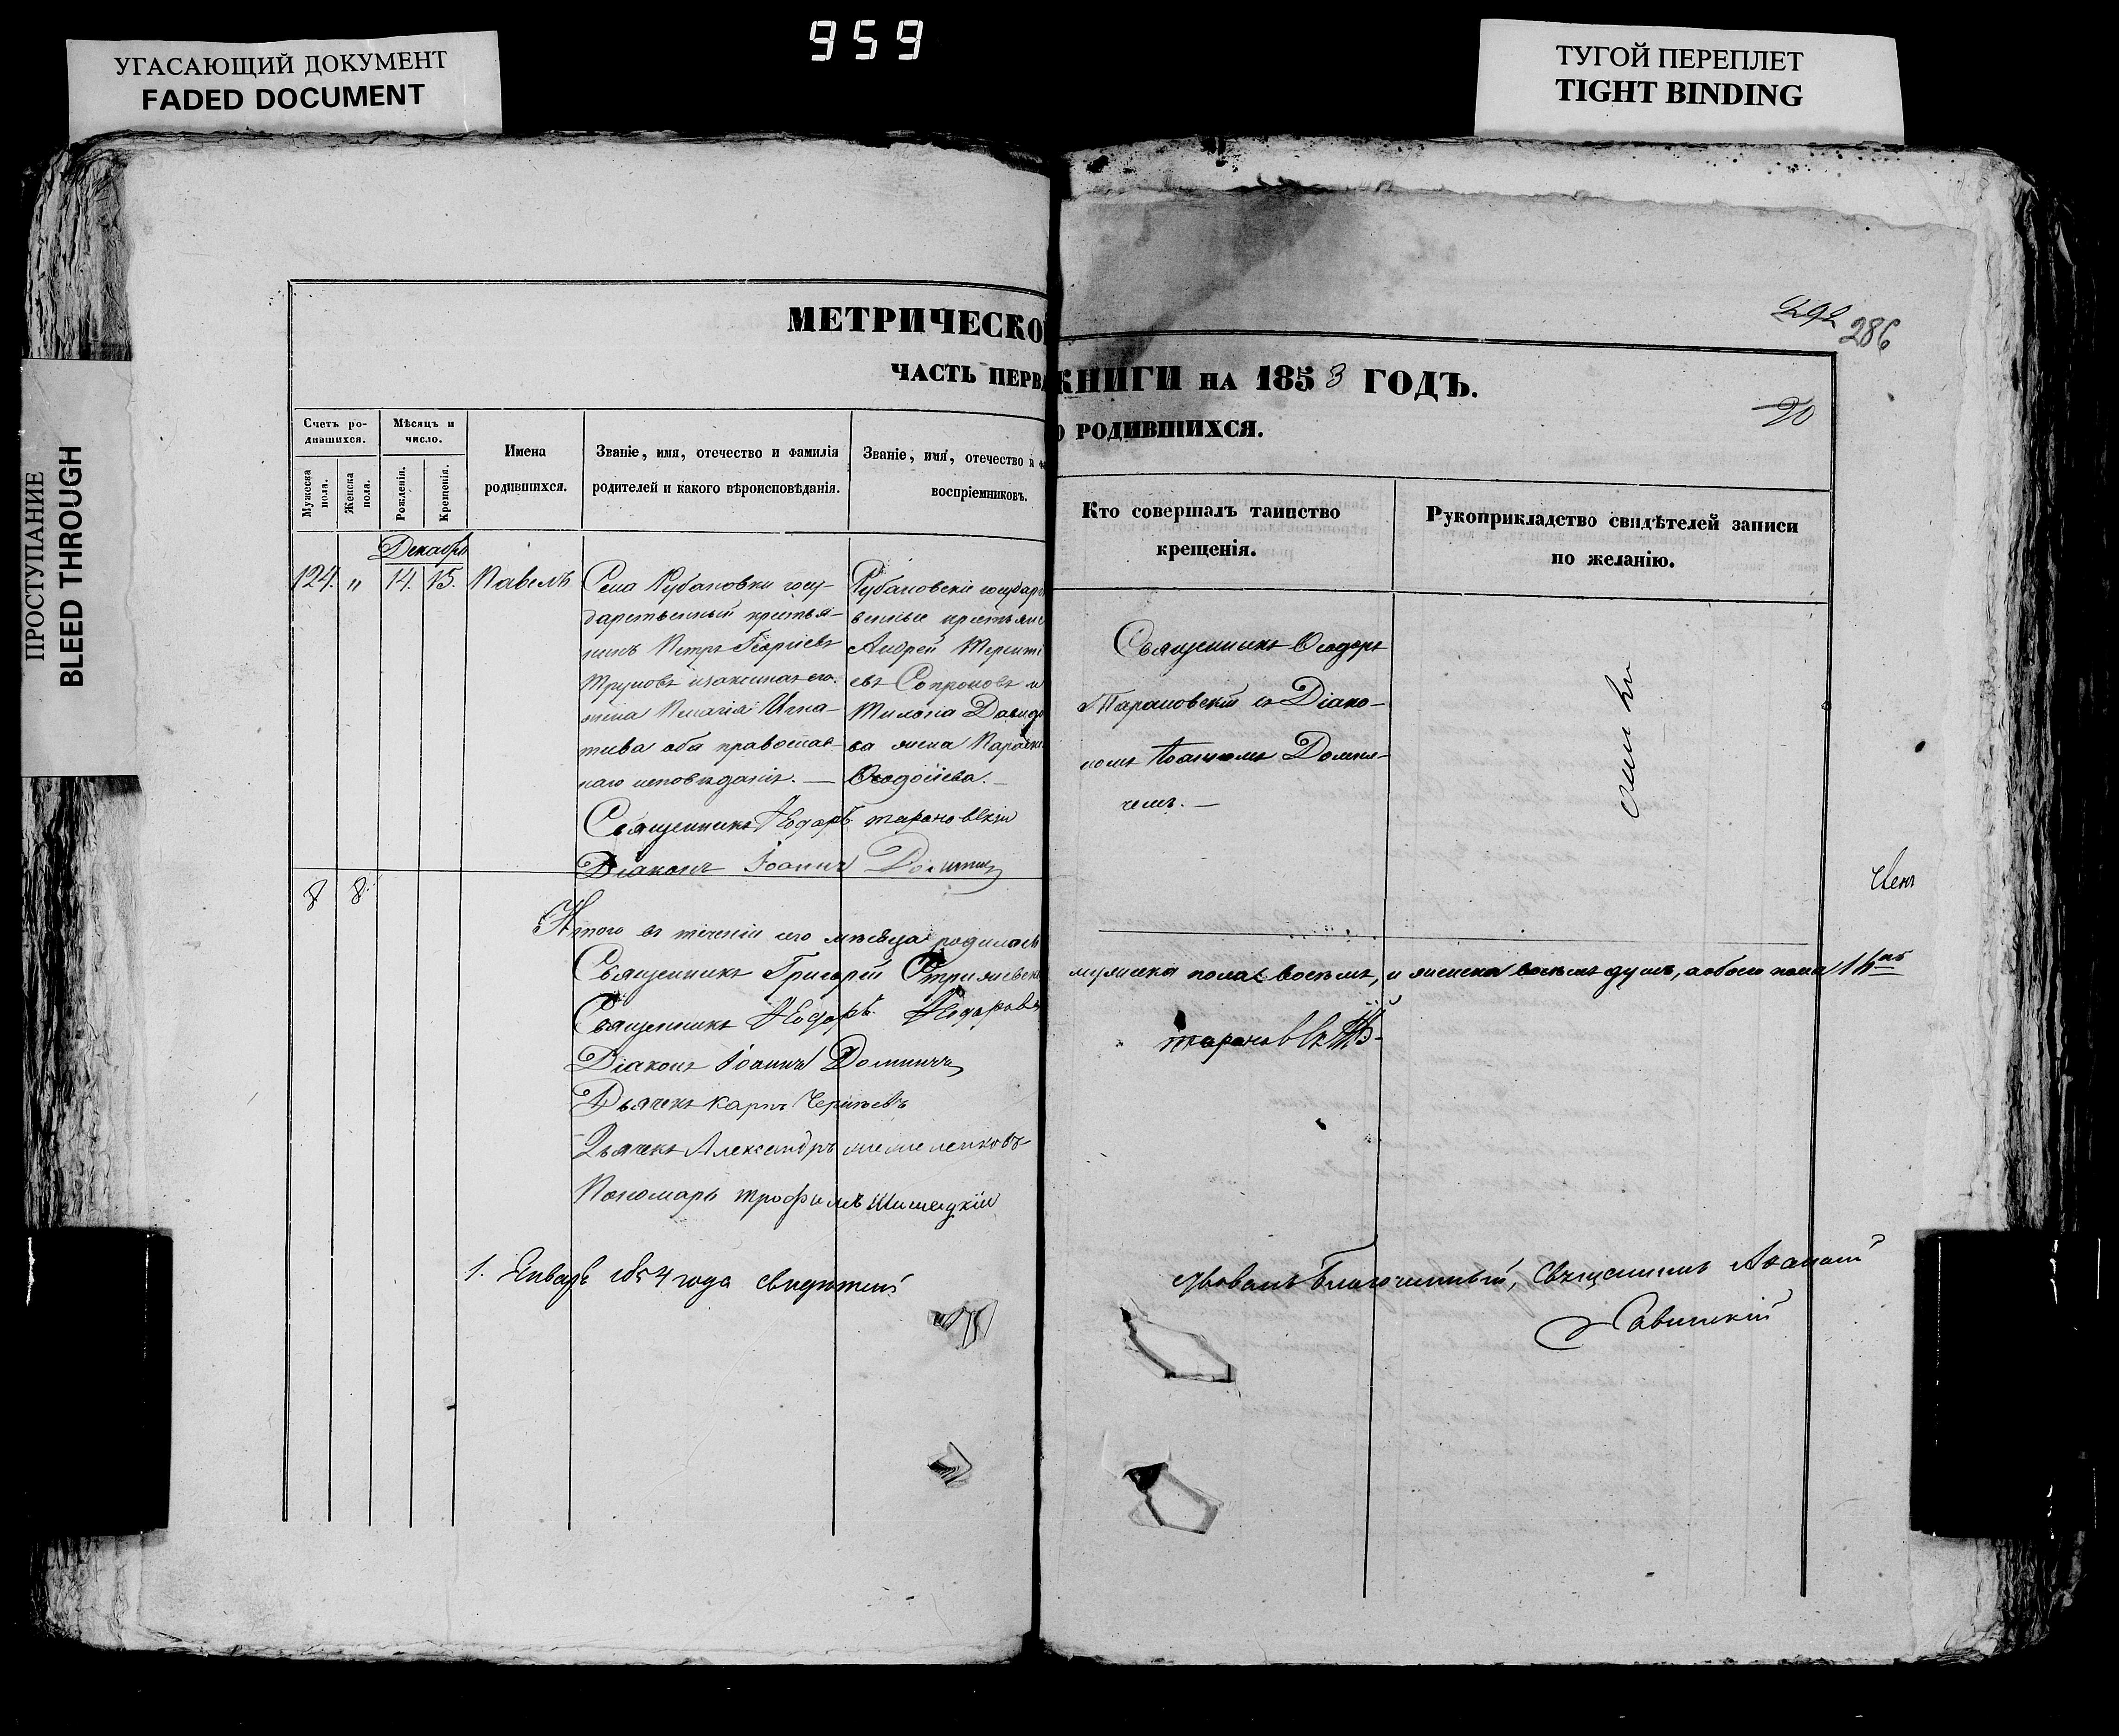 959
УГАСАЮЩИЙ ДОКУМЕНТ
FADED DOCUMENT
ТУГОЙ ПЕРЕПЛЕТ
TIGHT BINDING
ПРОСТУПАНИЕ
BLEED THROUGH
292 286
МЕТРИЧЕСКО
КНИГИ НА 1853 ГОДЪ.
20
ЧАСТЬ ПЕРВА
О РОДИВШИХСЯ.
Счетъ ро-
дившихся.
Мужеска
пола.
Женска
пола.
Мѣсяцъ и
число.
Рожденія.
Крещенія.
Имена
родившихся.
Званіе, имя, отечество и фамилія
родителей и какого вѣроисповѣданія.
Званіе, имя, отечество и фа
воспріемниковъ.
Кто совершалъ таинство
крещенія.
Рукоприкладство свидѣтелей записи
по желанію.
Декабрь
124. " 14. 15. Павелъ
Села Рубановки госу-
дарственный крестья-
нинъ Петръ Георгіевъ
Труновъ и законная его
жена Игна-
тиева оба православ-
наго исповѣданія. —
Рубановскіе государс
венные крестьяне
Андрей Терент
евъ Сопроновъ и
Давидо
ва жена Параске
Феодосіева. —
Священникъ Феодоръ
Тарановскій съ Діако-
номъ Іоанномъ Домни-
чемъ. —
Священникъ Феодоръ тарановскій
Діаконъ Іоаннъ Домнич
8 8
Итого въ теченіи сего мѣсяца родилось
мужеска пола восемь, и женска восемь душъ, а обоего пола 16ть
Священникъ Григорій Стрижевск
Священникъ Феодоръ Феодоровъ
тарановскій
Діаконъ Іоаннъ Домничъ
Дьячекъ Карпъ
Дьячекъ Александръ
Пономарь трофимъ Шишацкій
1. Январь 1854 года свидѣтель
ствовалъ Благочинный, Священникъ Аѳанасій
Савицкій